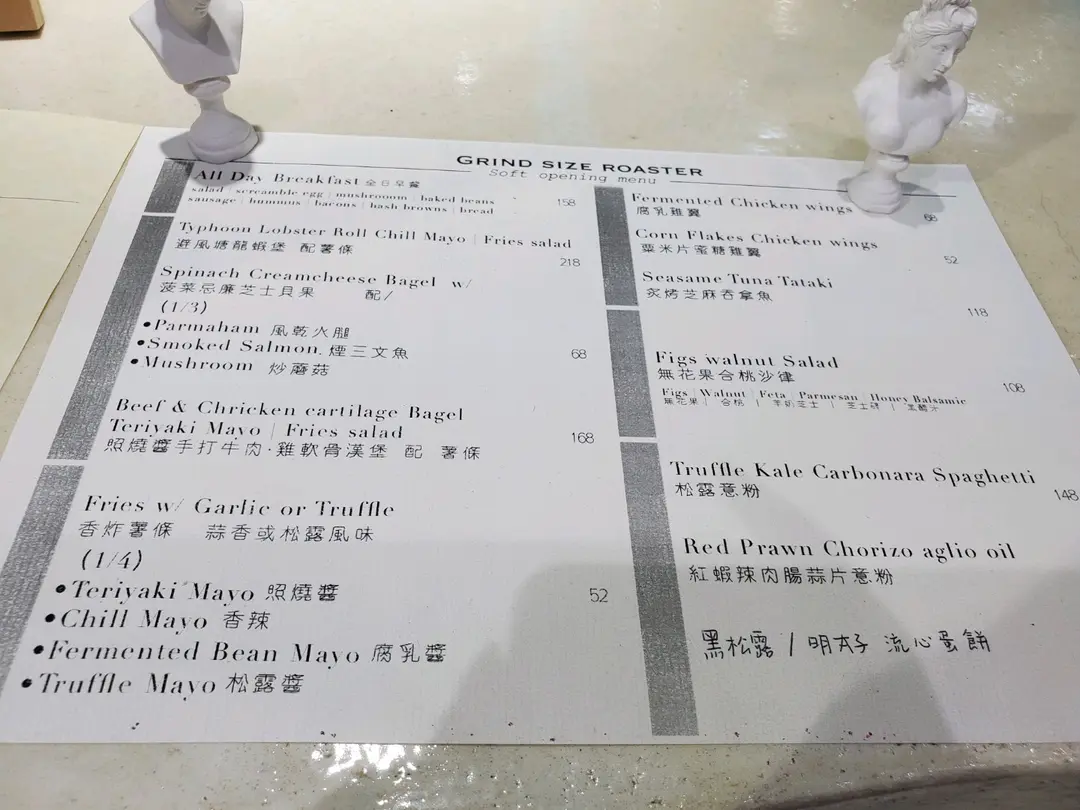 GRIND SIZE ROASTER
Soft opening menu
All Day Breakfast 全日早餐
salad | screamble egg | mushrooom | baked beans
sausage | hummus | bacons | hash browns | bread
158
Typhoon Lobster Roll Chill Mayo | Fries salad
避風塘龍蝦堡 配薯條
218
Spinach Creamcheese Bagel w/
菠菜忌廉芝士貝果 配/
(1/3)
•Parmaham 風乾火腿
•Smoked Salmon. 煙三文魚
68
•Mushroom 炒蘑菇
Beef & Chricken cartilage Bagel
Teriyaki Mayo | Fries salad
168
照燒醬手打牛肉·雞軟骨漢堡 配 薯條
Fries w/ Garlic or Truffle
香炸薯條 蒜香或松露風味
(1/4)
•Teriyaki Mayo 照燒醬
52
•Chill Mayo 香辣
•Fermented Bean Mayo 腐乳醬
•Truffle Mayo 松露醬
Fermented Chicken wings
腐乳雞翼
68
Corn Flakes Chicken wings
粟米片蜜糖雞翼
52
Seasame Tuna Tataki
炙烤芝麻吞拿魚
118
Figs walnut Salad
無花果合桃沙律
108
Figs | Walnut | Feta | Parmesan | Honey Balsamic
無花果 | 合桃 | 羊奶芝士 | 芝士碎 |
Truffle Kale Carbonara Spaghetti
松露意粉
148
Red Prawn Chorizo aglio oil
紅蝦辣肉腸蒜片意粉
黑松露 / 明太子 流心蛋餅